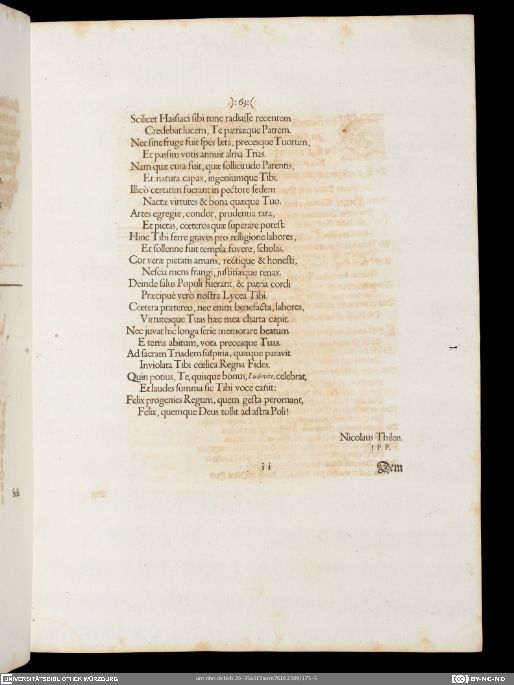 ):63:(
Scilicet Hassiaci sibi tunc radiasse recentem
Credebat lucem, Te patriæque Patrem.
Nec sine fruge fuit spes læta, precesque Tuorum,
Et passim votis annuit alma Trias.
Nam quæ cura fuit, quæ sollicitudo Parentis,
Et natura capax, ingeniumque Tibi.
Illicò certatim fuerant in pectore sedem
Nactæ virtutes & bona quæque Tuo.
Artes egregiæ, condor, prudentia rara,
Et pietas, cœteros quæ superare potest.
Hinc Tibi ferre graves pro relligione labores,
Et sollenne fuit templa fovere, scholas.
Cor veræ pietatis amans, rectique & honesti,
Nescia mens frangi, justitiæque tenax.
Deinde salus Populi fuerant, & patria cordi
Præcipuè verò nostra Lycea Tibi.
Cœtera prætereo, nec enim benefacta, labores,
Virtutesque Tuas hæc mea charta capit.
Nec juvat hic longa serie memorare beatum
E terris abitum, vota precesque Tuas.
Ad sacram Triadem suspiria, quæque paravit
Inviolata Tibi cœlica Regna Fides.
Quin potius, Te, quisque bonus, Ludovice, celebrat,
Et laudes summa sic Tibi voce canit:
Felix progenies Regum, quem gesta perornant,
Felix, quemque Deus tollit ad astra Poli!
Nicolaus Thilen.
J. P. P.
i i
Dem
UNIVERSITÄTSBIBLIOTHEK WÜRZBURG
BY-NC-ND